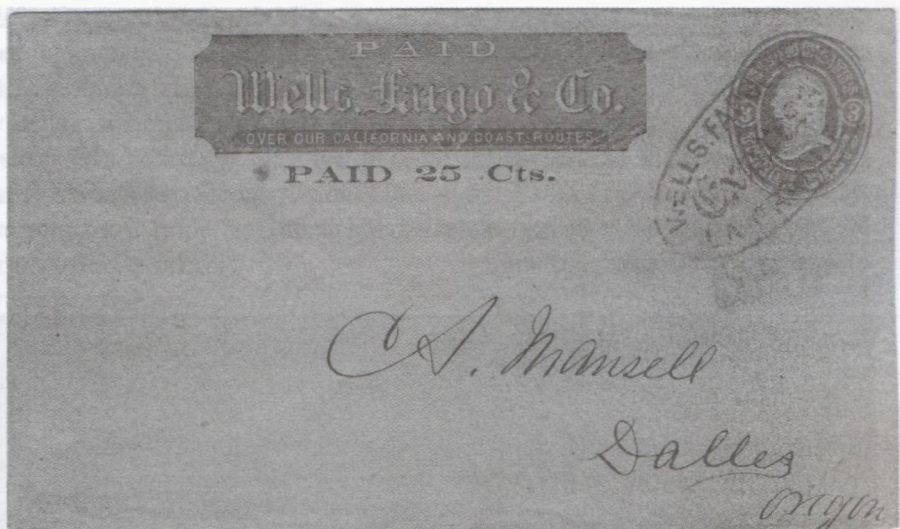 PAID
Wells, Fargo & Co.
OVER OUR CALIFORNIA AND COAST ROUTES
PAID 25 Cts.
WELLS, FA
3 3
A. Mansell
Dalles
Oregon